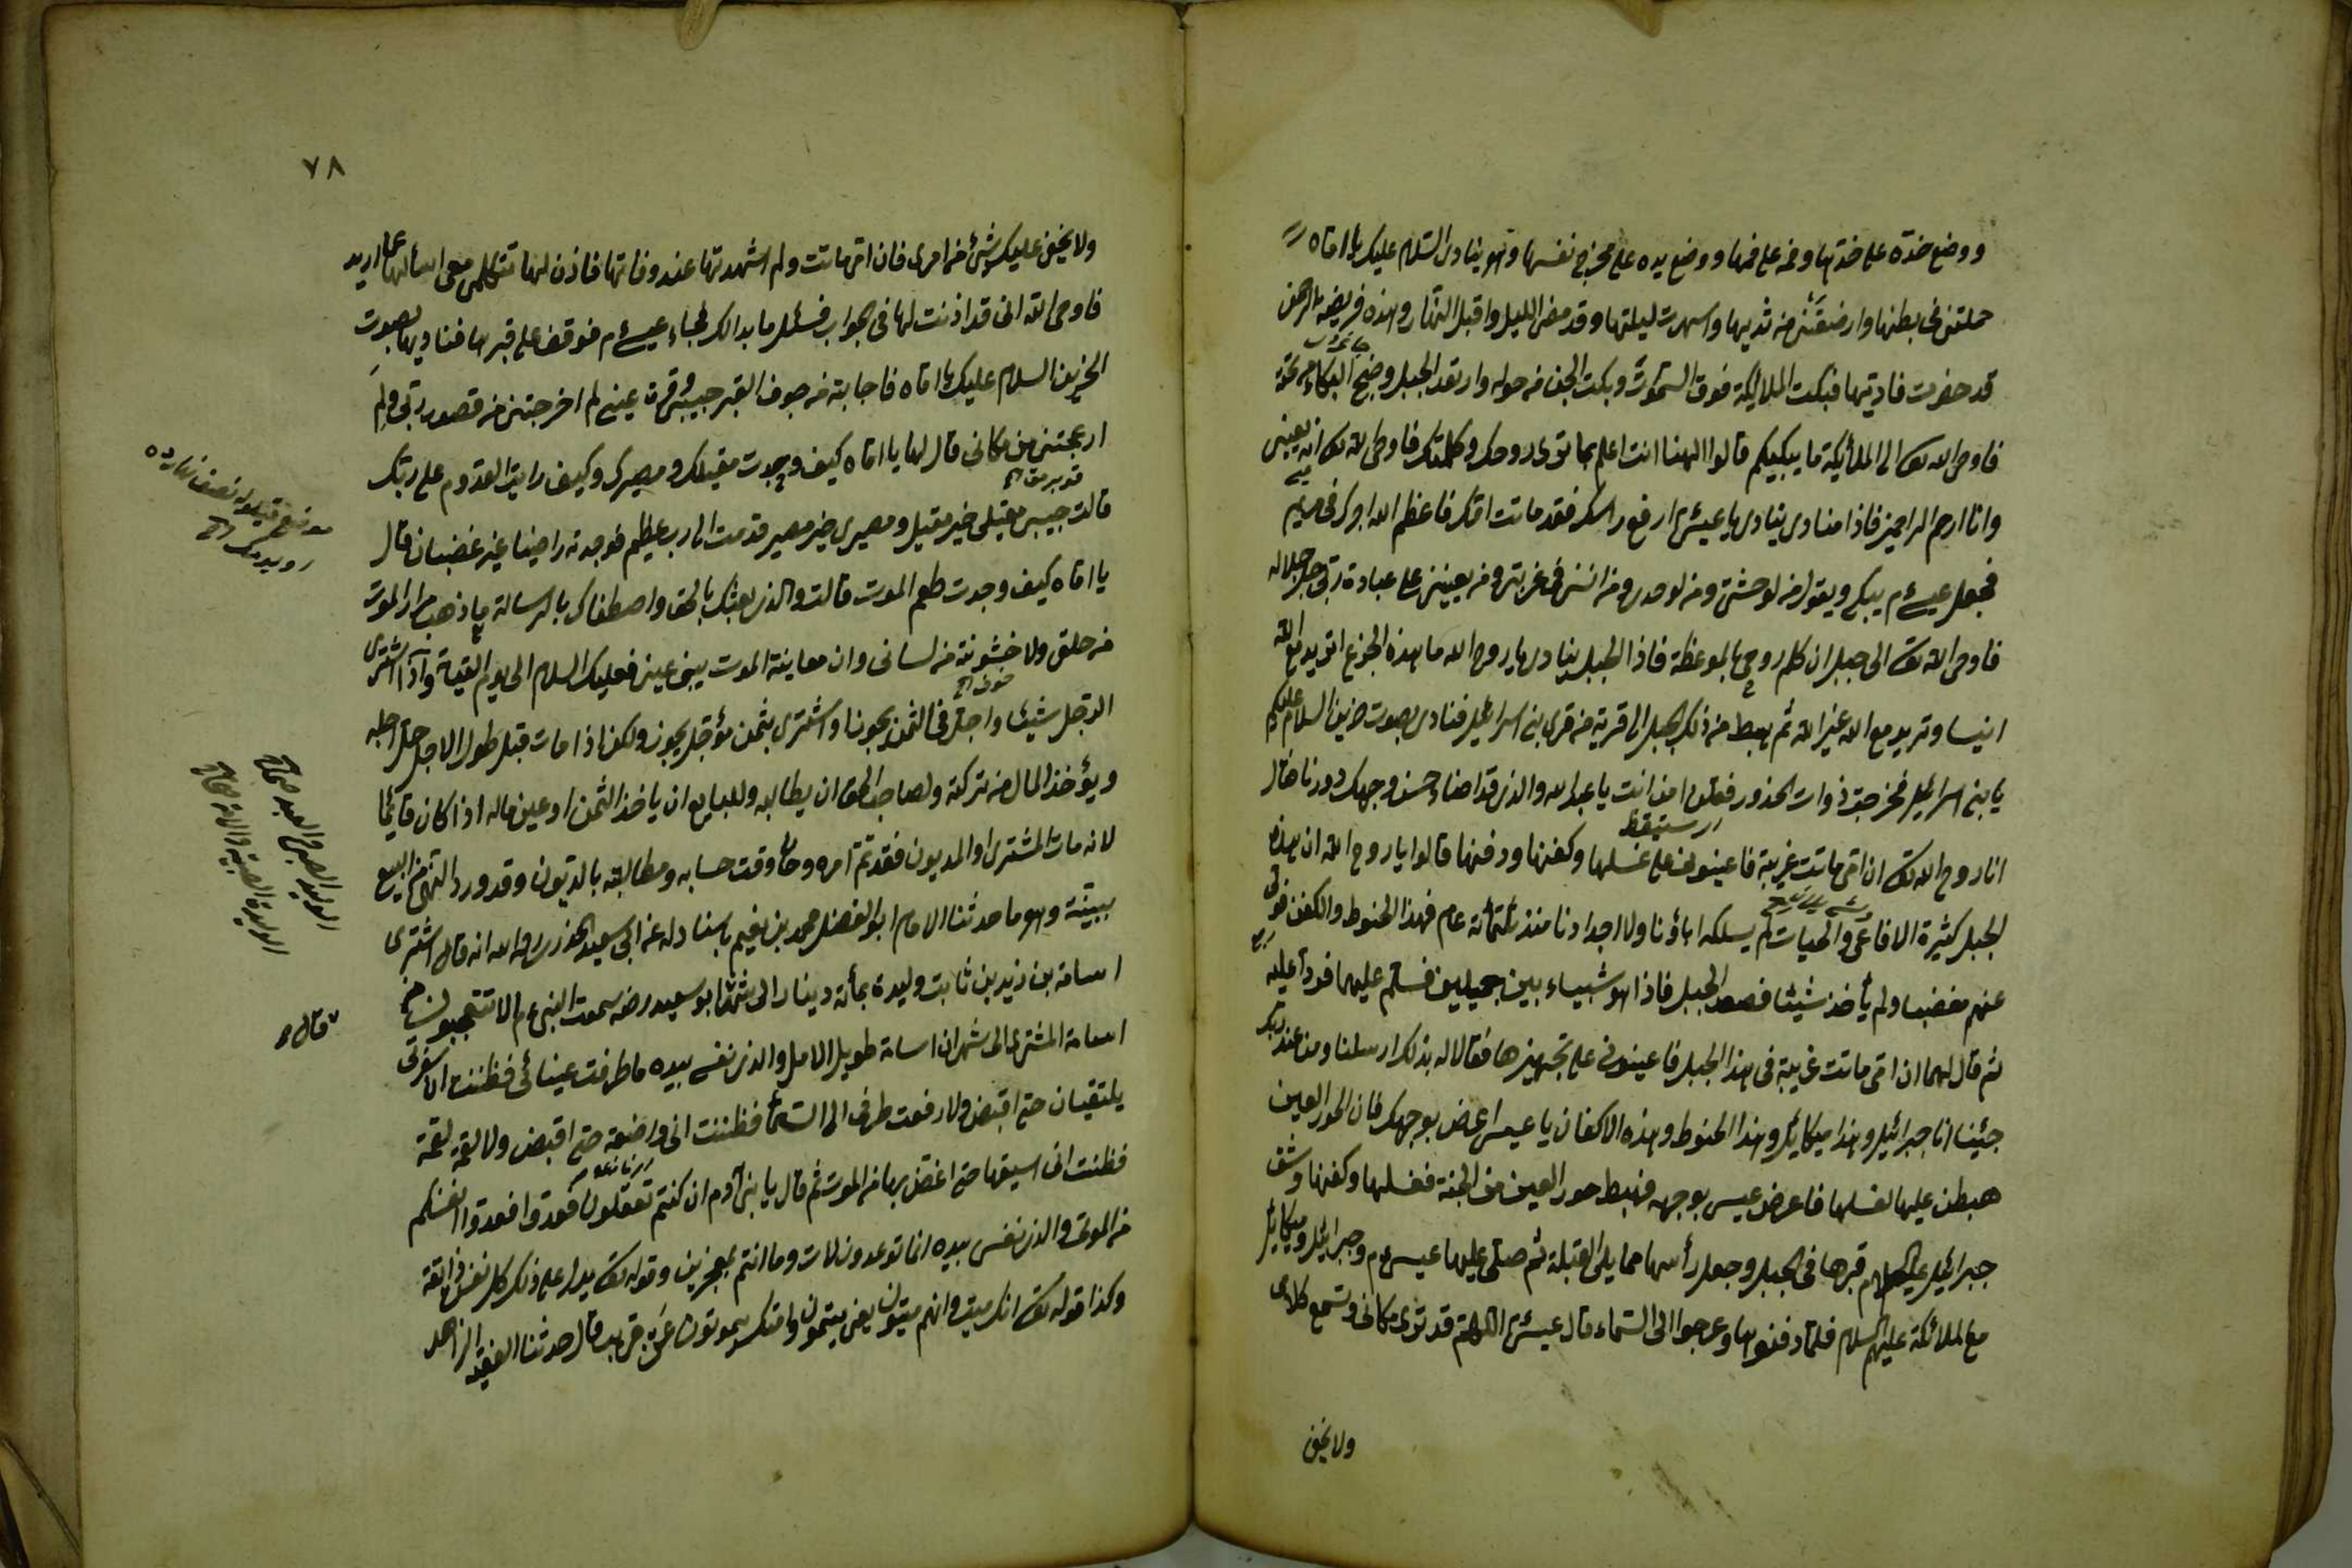 ووضع خده على خدها وفمه على فمها ووضع يده على مخرج نفسها وهو ينادى السلام عليك يا اماه
حملتنى فى بطنها وارضعتنى من ثديها واسهرت ليلتها وقد مضى الليل واقبل النهار وهذه فريضة الرحمن
قد حضرت فاديتها فبكت الملائكة فوق السموات وبكت الجن من حوله وارتعد الجبل وضج البكاء من تحته
فاوحى الله تعالى الى الملائكة ما يبكيكم قالوا الهنا انت اعلم بما ترى روحك وكلمتك فاوحى الله تعالى انه بعينى
وانا ارحم الراحمين فاذا مناد ينادى يا عيسى ارفع راسك فقد ماتت امك فاعظم الله اجرك فى مريم
فجعل عيسى ع م يبكى ويقول من لوحشتى ومن لوحدتى ومن انسى فى غربتى ومن يعيننى على عبادة ربى جل جلاله
فاوحى الله تعالى الى جبل ان كلم روحى بالموعظة فاذا الجبل ينادى يا روح الله ما هذه الجزع اتريد مع الله
انيسا وتريد مع الله غير الله ثم هبط من ذلك الجبل الى قرية من قرى بنى اسرائيل فنادى بصوت حزين السلام عليكم
يا بنى اسرائيل فخرجت ذوات الخدور فقلن من انت يا عبد الله والذى قد اضاء حسن وجهك دورنا فقال
انا روح الله تعالى ان امى ماتت غريبة فاعينونى على غسلها وكفنها ودفنها قالوا يا روح الله ان هذه
الجبل كثيرة الافاعى والحيات لم يسلكه اباؤنا ولا اجدادنا منذ ثلثمائة عام فهذا الحنوط والكفن فولى
عنهم مغضبا ولم يأخذ شيئا فصعد الجبل فاذا هو بشبيا بين جميلين فسلم عليهما فردا عليه
ثم قال لهما ان امى ماتت غريبة فى هذا الجبل فاعينونى على تجهيزها فقالا له بذلك ارسلنا ومن عند ربك
جئينا انا جبرائيل وهذا ميكائيل وهذا الحنوط وهذه الاكفان يا عيسى اعرض بوجهك فان الحور العين
هبطن عليها لغسلها فاعرض عيسى بوجهه فهبط حور العين من الجنة فغسلها وكفنها وشق
جبرائيل عليه السلام قبرها فى الجبل وجعل رأسها مما يلى القبلة ثم صلى عليها عيسى ع م وجبرائيل وميكائيل
مع الملائكة عليهم السلام فلما دفنوها وعرجوا الى السماء قال عيسى ع اللهم قد ترى مكانى وتسمع كلامى
ولا يخفى
٧٨
ولا يخفى عليك شئ من امرى فان امى ماتت ولم اشهدتها عند وفاتها فاذن لها تتكلم معى اسألها عما اريد
فاوحى الله انى قد اذنت لها فى الجواب فسئل ما بدالك فجاء عيسى ع م فوقف على قبرها فناديها بصوت
الحزين السلام عليك يا اماه فاجابته من جوف القبر حبيبى وقرة عينى لم اخرجتنى من قصور ربى ولم
ازعجتنى من مكانى قال لها يا اماه كيف وجدت مقيلك ومصيرك وكيف رايت القدوم على ربك
قالت حبيبى مقيلى خير مقيل ومصيرى خير مصير قدمت الى رب عظيم فوجدته راضيا غير غضبان قال
يا اماه كيف وجدت طعم الموت قالت والذى بعثك بالحق واصطفاك بالرسالة ما ذهب مرار الموت
من حلقى ولا خشونته من لسانى وان معاينة الموت بين عينى فعليك السلام الى يوم القيمة واذا اشترى
الرجل شيئا واجل فى الثمن يجوز واشترى بثمن مؤجل يجوز ولكن اذا مات قبل طول الاجل حل اجله
ويؤخذ المال من تركته ولصاحب الحق ان يطالبه وللبايع ان ياخذ الثمن او عين ماله اذا كان قائما
لانه مات المشترى او المديون فقد تم امره وحان وقت حسابه ومطالبته بالديون وقد ورد النهى عن البيع
ببينة وهو ما حدثنا الامام ابو الفضل محمد بن نعيم باسناد له عن ابى سعيد الخدرى رضى الله انه قال اشترى
اسامة بن زيد بن ثابت وليدة بمأة دينار الى شهر ابو سعيد رضه سمعت النبى ع م الا تتعجبون من
قال
اسامة المشترى الى شهر ان اسامة طويل الامل والذى نفسى بيده ما طرفت عينائى فظننت ان شفرى
يلتقيان حتى اقبض ولا رفعت طرفى الى السماء فظننت انى واضعه حتى اقبض ولا لقمة لقمة
فظننت انى اسيغها حتى اغتص بها من الموت ثم قال يا بنى آدم ان كنتم تعقلون فعدوا فعدوا انفسكم
من الموتى والذى نفسى بيده انما توعدون لات وما انتم بمعجزين وقوله تعالى يدل على ذلك كل نفس ذائقة
وكذا قوله تعالى انك ميت وانهم ميتون يعنى يتمون وامتك سيموتون عن قريب قال حدثنا الفقيه الزاهد